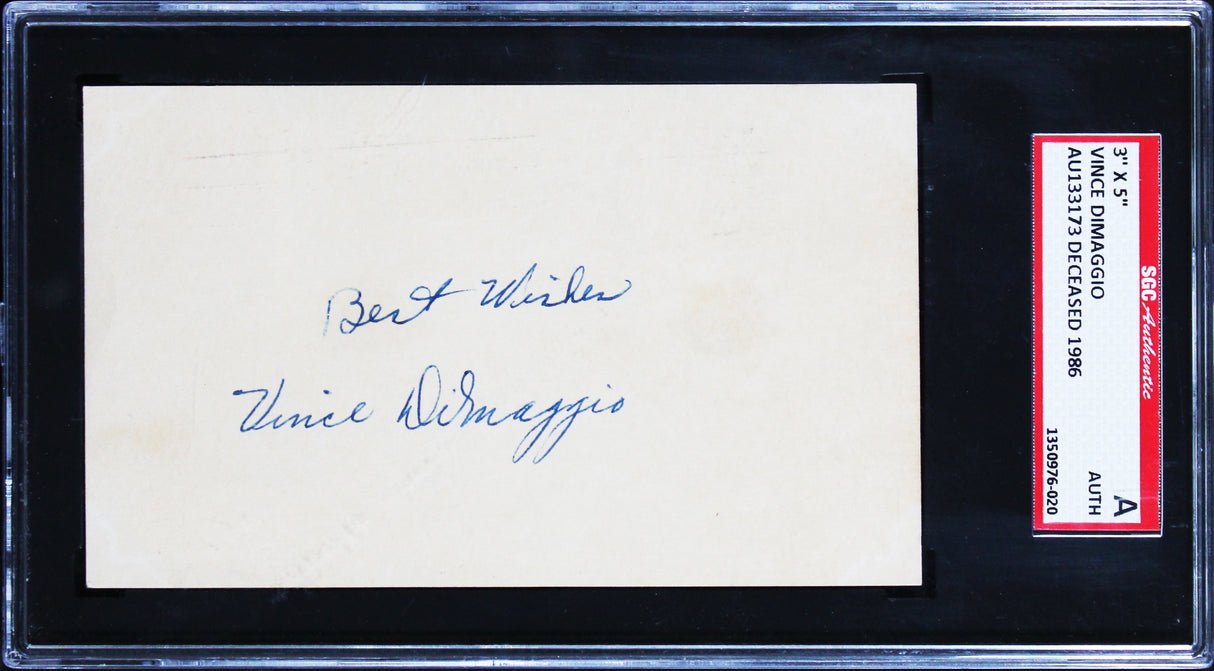 Best Wishes
Vince DiMaggio
SGC Authentic
3" X 5"
VINCE DIMAGGIO
AU133173 DECEASED 1986
A
AUTH
1350976-020